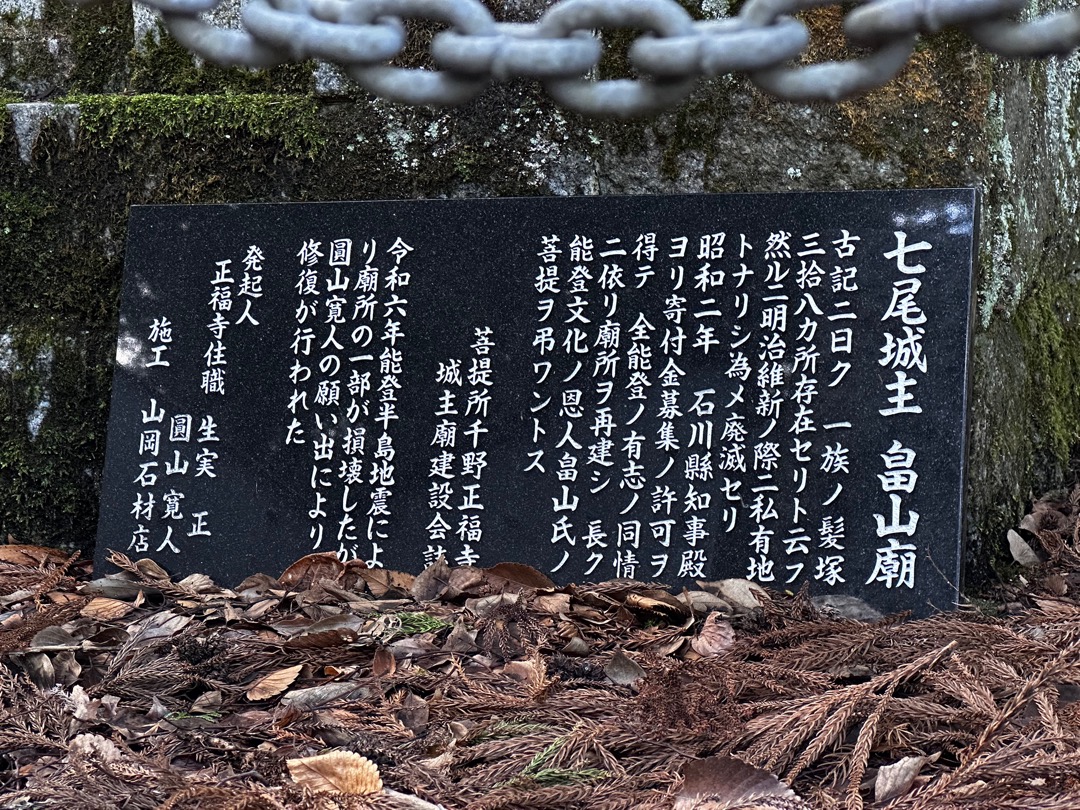 七尾城主 畠山廟
古記ニ曰ク 一族ノ髪塚
三拾八カ所存在セリト云フ
然ルニ明治維新ノ際ニ私有地
トナリシ為メ廃滅セリ
昭和二年 石川縣知事殿
ヨリ寄付金募集ノ許可ヲ
得テ 全能登ノ有志ノ同情
ニ依リ廟所ヲ再建シ 長ク
能登文化ノ恩人畠山氏ノ
菩提ヲ弔ワントス
菩提所千野正福寺
城主廟建設会誌
令和六年能登半島地震によ
り廟所の一部が損壊したが
圓山寛人の願い出により
修復が行われた
発起人
正福寺住職 生実 正
圓山 寛人
施工 山岡石材店